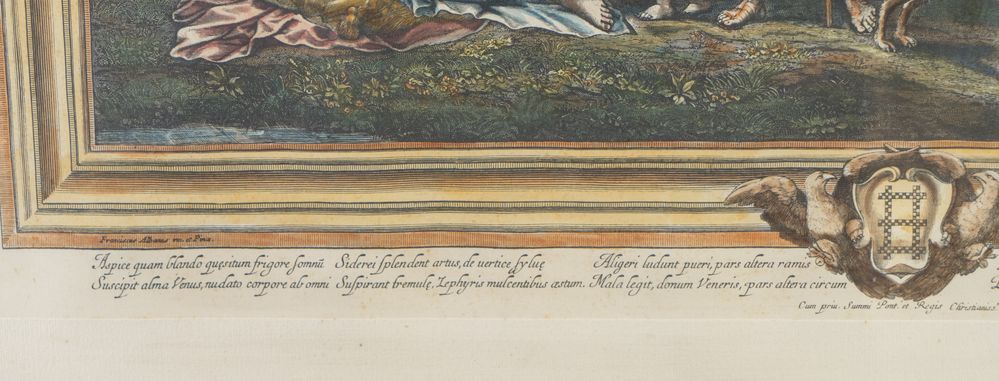 Franciscus Albanus inv. et Pinx.
Aspice quam blando quęsitum frigore ſomnū
Suscipit alma Venus, nudato corpore ab omni
Siderei ſplendent artus, de vertice ſyluę
Suſpirant tremulę, Zephyris mulcentibus æstum.
Aligeri ludunt pueri, pars altera ramis
Mala legit, donum Veneris, pars altera circum
Cum priu. Summi Pont. et Regis Christianiss.